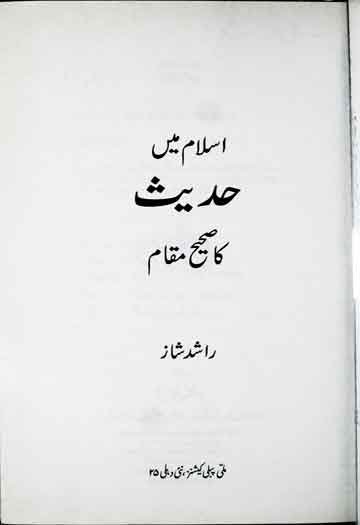 اسلام میں
حدیث
کا صحیح مقام
راشد شاز
ملّی پبلی کیشنز، نئی دہلی ۲۵